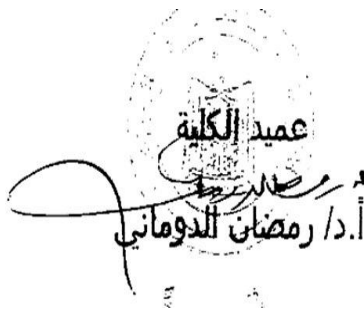 عميد الكلية
أ.د/ رمضان الدوماني